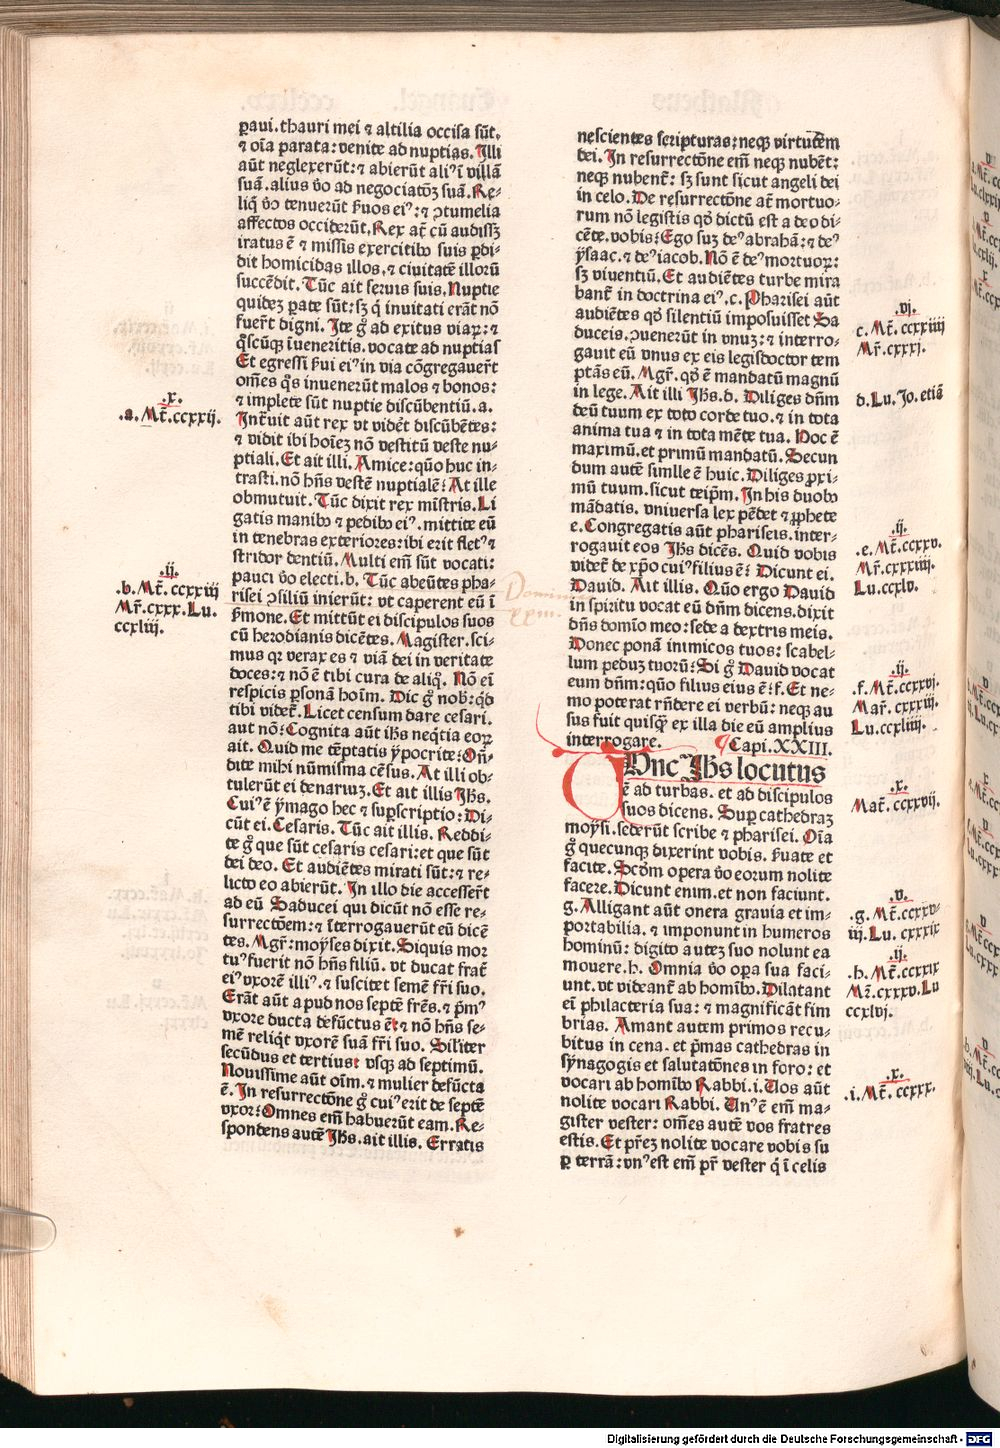 ꝑaui. thauri mei ⁊ altilia occisa sūt,
⁊ oīa parata: venite ad nuptias. Illi
aūt neglexerūt: ⁊ abierūt aliꝰ ī villā
suā. alius v̊o ad negociatōꝫ suā. Re-
liq̇ v̊o tenuerūt ẜuos eiꝰ: ⁊ ꝯtumelia
affectos occiderūt, Rex at̄ cū audissꝫ
iratus ē ⁊ missis exercitibꝰ suis ꝑdi-
dit homicidas illos, ⁊ ciuitatē illorū
succēdit. Tūc ait seruis suis, Nuptie
quideꝫ ꝑate sūt: sꝫ q̇ inuitati erāt nō
fuer̄t digni. Ite g̊ ad exitus viaꝝ: ⁊
q̄scūqꝫ īueneritis. vocate ad nuptias
Et egressi ẜui eiꝰ in via cōgregauer̄t
om̄es q̄s inuenerūt malos ⁊ bonos:
⁊ implete sūt nuptie discūbentiū. a.
Intr̄uit aūt rex vt videt̄ discūbētes:
⁊ vidit ibi hoīeꝫ nō vestitū veste nu-
ptiali. Et ait illi. Amice: quō huc in-
trasti. nō hn̄s vestē nuptialē: At ille
obmutuit. Tūc dixit rex mīstris. Li
gatis manibꝰ ⁊ pedibꝰ eiꝰ. mittite eū
in tenebras exteriores: ibi erit fletꝰ ⁊
stridor dentiū. Multi em̄ sūt vocati:
pauci v̊o electi. b. Tūc abeūtes pha-
risei ꝯsiliū inierūt: vt caperent eū ī
ẜmone. Et mittūt ei discipulos suos
cū herodianis dicētes. Magister. sci-
mus qꝛ verax es ⁊ viā dei in veritate
doces: ⁊ nō ē tibi cura de aliq̊. Nō eī
respicis ꝑsonā hoīm. Dic g̊ nob̄: q̇d
tibi videt̄. Licet censum dare cesari.
aut nō: Cognita aūt ih̄s neq̇tia eoꝝ
ait. Quid me tēptatis ypocrite: On̄-
dite mihi nūmisma cēsus. At illi ob-
tulerūt ei denariuꝫ. Et ait illis Ih̄s.
Cuiꝰ ē ymago hec ⁊ suꝑscriptio: Di-
cūt ei. Cesaris. Tūc ait illis. Reddi-
te g̊ que sūt cesaris cesari: et que sūt
dei deo. Et audiētes mirati sūt: ⁊ re-
licto eo abierūt. In illo die accesser̄t
ad eū Saducei qui dicūt nō esse re-
surrectōem: ⁊ īterrogauerūt eū dicē
tes. Mgr̄: moyses dixit. Siquis mor
tuꝰ fuerit nō hn̄s filiū. vt ducat frat̄
eiꝰ vxorē illiꝰ. ⁊ suscitet semē fr̄i suo.
Erāt aūt apud nos septē fr̄es. ⁊ p̄mꝰ
vxore ducta defūctus ē: ⁊ nō hn̄s se-
mē reliq̇t vxorē suā fr̄i suo. Sil̄iter
secūdus et tertius: vsqꝫ ad septimū.
Nouissime aūt oīm. ⁊ mulier defūcta
ē. In resurrectōne g̊ cuiꝰ erit de septē
vxor: Omnes em̄ habuerūt eam. Re-
spondens autē Ih̄s. ait illis. Erratis
.x.
.a. Mt̄. ccxxij.
.ij.
.b. Mt̄. ccxxiij
Mr̄. cxxx. Lu.
ccxliij.
nescientes scripturas: neqꝫ virtutem
dei. In resurrectōne em̄ neqꝫ nubēt:
neqꝫ nubent̄: sꝫ sunt sicut angeli dei
in celo. De resurrectōne at̄ mortuo-
rum nō legistis qḋ dictū est a deo di-
cēte. vobis: Ego suꝫ deꝰ abrahā: ⁊ deꝰ
ysaac. ⁊ deꝰ iacob. Nō ē deꝰ mortuoꝝ:
sꝫ viuentiū. Et audiētes turbe mira
bant̄ in doctrina eiꝰ. c. Pharisei aūt
audiētes qḋ silentiū imposuisset Sa
duceis. ꝯuenerūt in vnuꝫ: ⁊ interro-
gauit eū vnus ex eis legisdoctor tem
ptās eū. Mgr̄. qḋ ē mandatū magnū
in lege. Ait illi Ih̄s. d. Diliges dn̄m
deū tuum ex toto corde tuo. ⁊ in tota
anima tua ⁊ in tota mēte tua. Hoc ē
maximū. et primū mandatū. Secun
dum autē simile ē huic. Diliges ꝓxi-
mū tuum. sicut teip̄m. In his duobꝰ
mādatis. vniuersa lex pēdet ⁊ ꝓphete
e. Congregatis aūt phariseis. inter-
rogauit eos Ih̄s dicēs. Quid vobis
videt̄ de xp̄o cuiꝰ filius ē: Dicunt ei.
Dauid. Ait illis. Quō ergo Dauid
in spiritu vocat eū dn̄m dicens. dixit
dn̄s domīo meo: sede a dextris meis.
Donec ponā inimicos tuos: scabel-
lum peduꝫ tuorū: Si g̊ Dauid vocat
eum dn̄m: quō filius eius ē: f. Et ne-
mo poterat rn̄dere ei verbū: neqꝫ au
sus fuit quisqꝫ ex illa die eū amplius
interrogare. ¶ Capi. XXIII.
Tunc Ih̄s locutus
ē ad turbas. et ad discipulos
suos dicens. Suꝑ cathedraꝫ
moysi. sederūt scribe ⁊ pharisei. Oīa
g̊ quecunqꝫ dixerint vobis. ẜuate et
facite. Scd̄m opera v̊o eorum nolite
facere. Dicunt enim. et non faciunt.
g. Alligant aūt onera grauia et im-
portabilia. ⁊ imponunt in humeros
hominū: digito auteꝫ suo nolunt ea
mouere. h. Omnia v̊o oꝑa sua faci-
unt. vt videant̄ ab homībꝰ. Dilatant
eī philacteria sua: ⁊ magnificāt fim
brias. Amant autem primos recu-
bitus in cena. et p̄mas cathedras in
synagogis et salutatōnes in foro: et
vocari ab homībꝰ Rabbi. i. Uos aūt
nolite vocari Rabbi. Unꝰ ē em̄ ma-
gister vester: om̄es autē vos fratres
estis. Et pr̄eꝫ nolite vocare vobis su
ꝑ terrā: vnꝰ est em̄ pr̄ vester q̇ ī celis
.vj.
c. Mt̄. ccxxiiij
Mr̄. cxxxj.
d. Lu. Jo. etiā
.ij.
.e. Mt̄. ccxxv.
Mr̄. cxxxiiij.
Lu. ccxlv.
.ij.
.f. Mt̄. ccxxvj.
Mar̄. cxxxiij.
Lu. ccxliiij.
.x.
Mat̄. ccxxvij.
.v.
.g. Mt̄. ccxxv-
iij. Lu. cxxxix
.ij.
.h. Mt̄. ccxxix
Mr̄. cxxxv. Lu
ccxlvj.
.x.
.i. Mt̄. ccxxx.
Digitalisierung gefördert durch die Deutsche Forschungsgemeinschaft - DFG